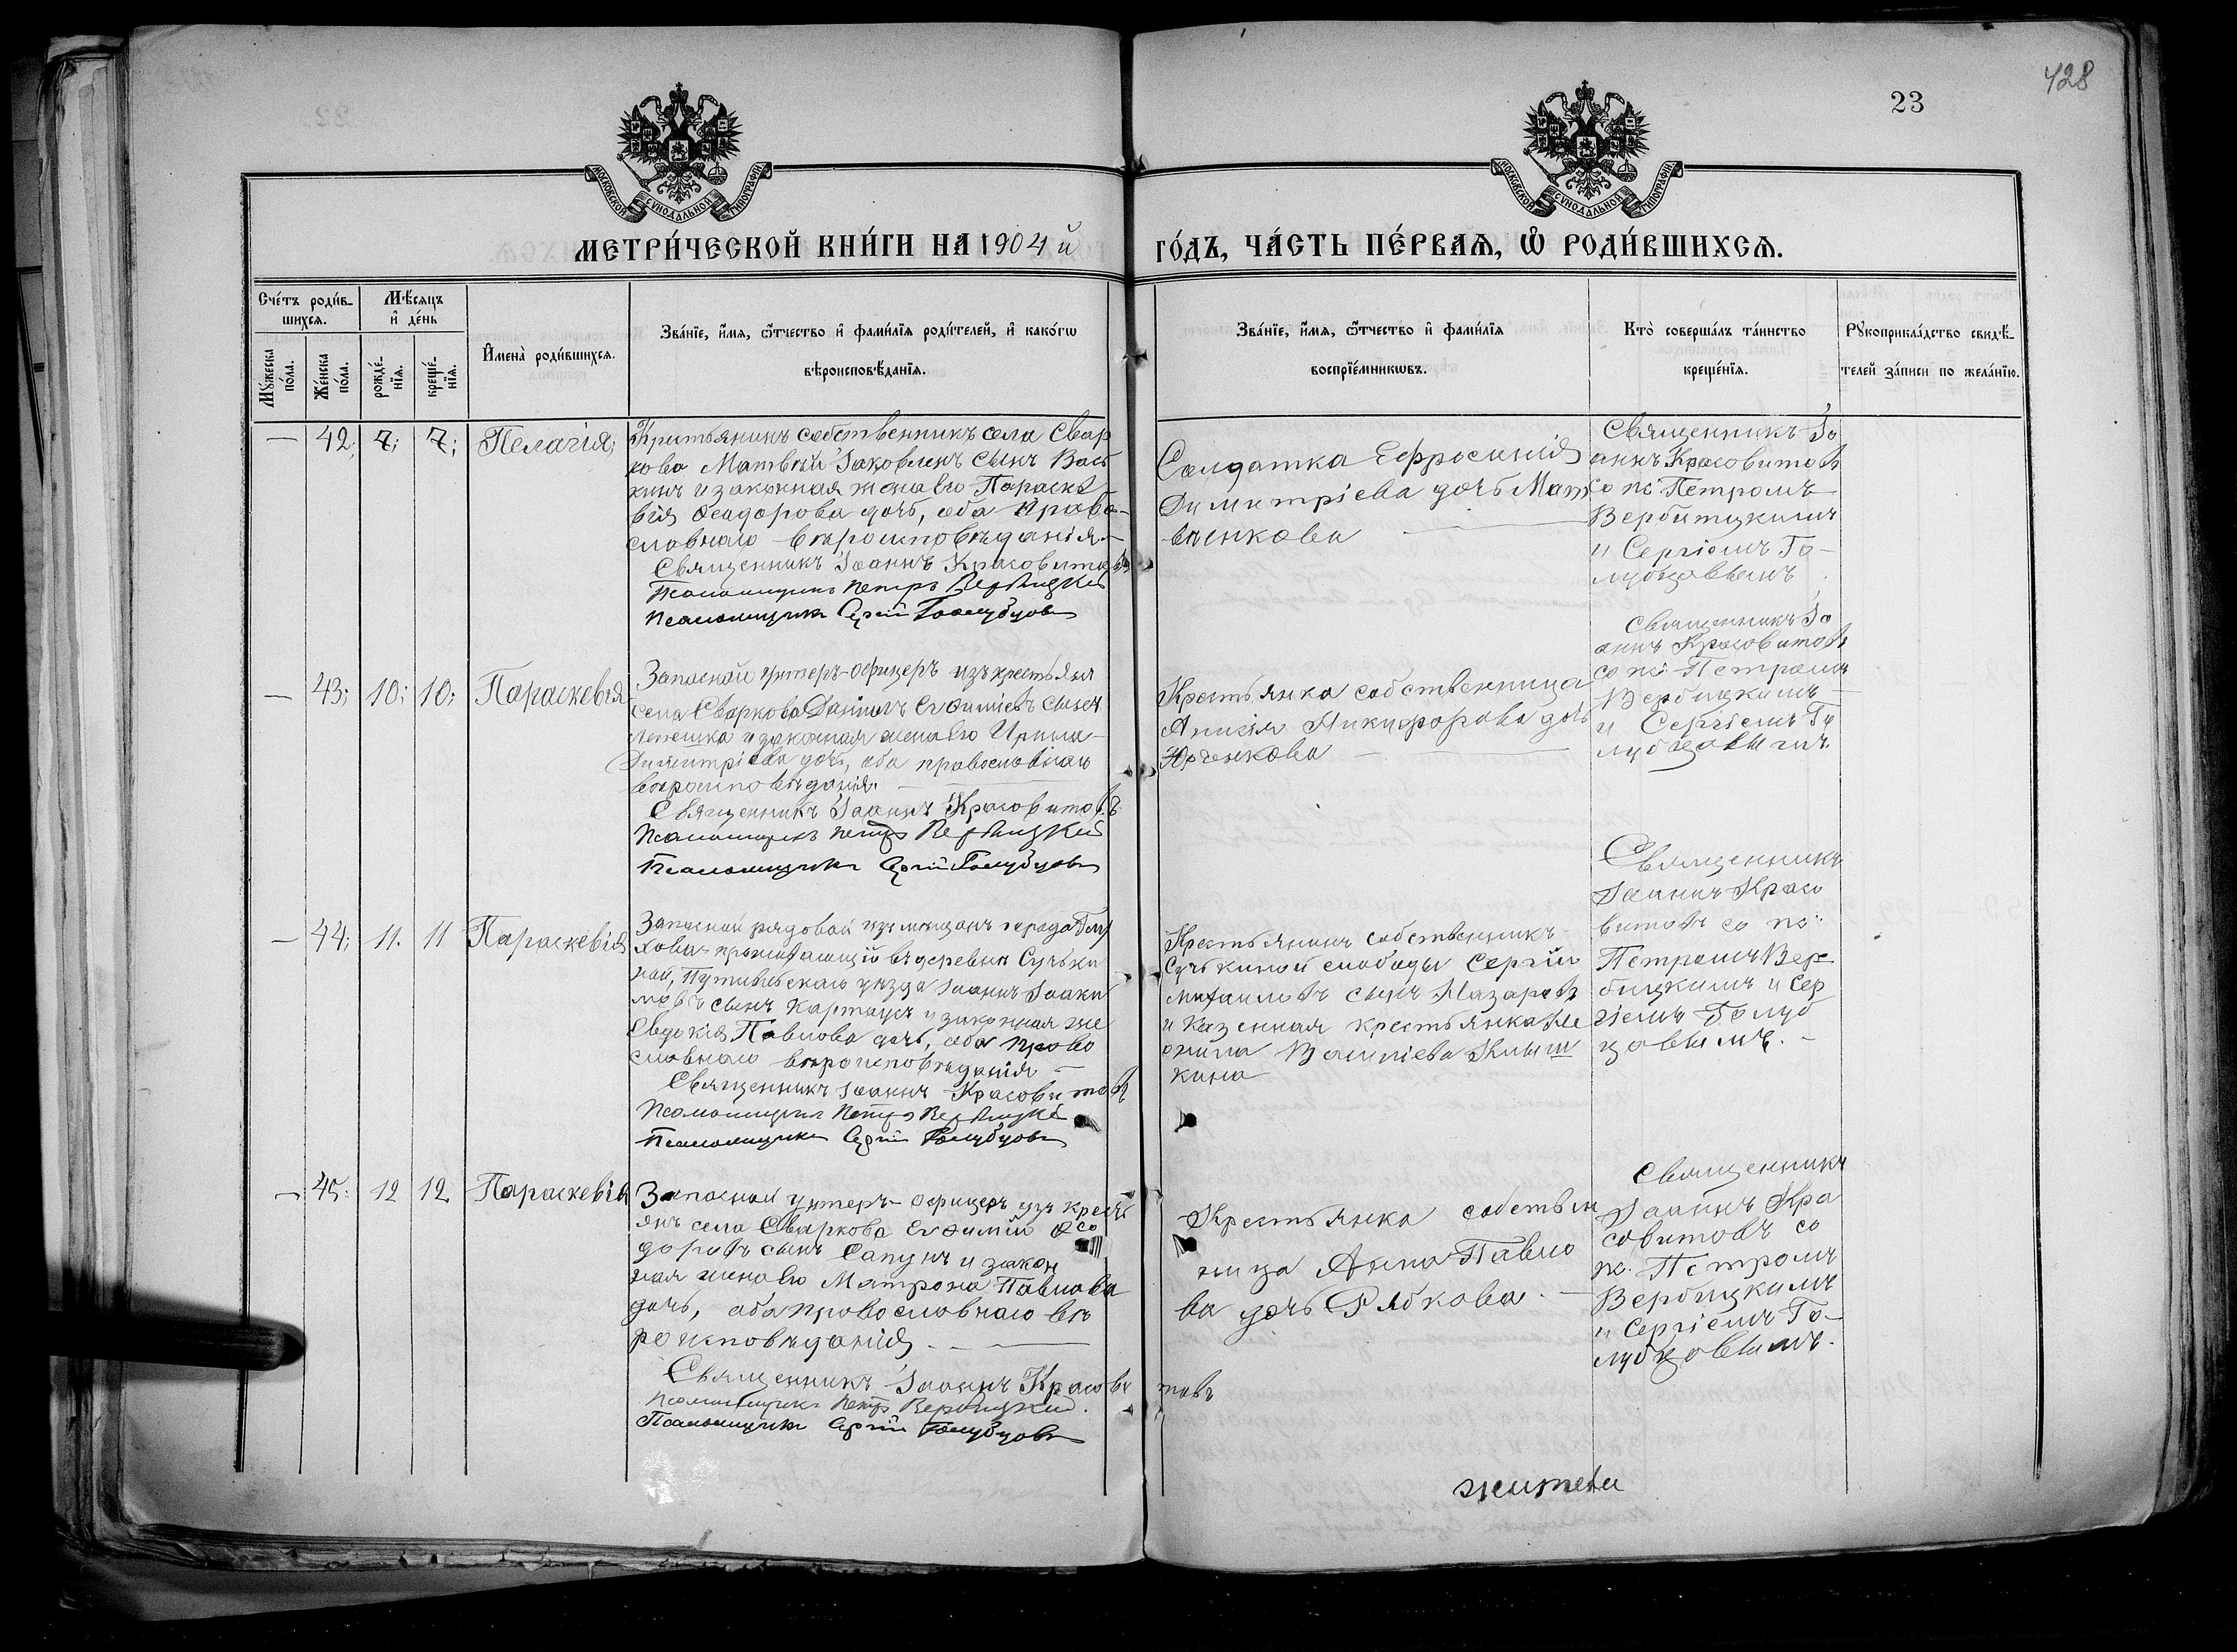 428
23
МОСКОВСКОЙ СѴНОДАЛЬНОЙ ТИПОГРАФІИ
МОСКОВСКОЙ СѴНОДАЛЬНОЙ ТИПОГРАФІИ
МЕТРИ́ЧЕСКОЙ КНИ́ГИ НА 1904 й
ГО́ДЪ, ЧА́СТЬ ПЕ́РВАѦ, Ѡ҆ РОДИ́ВШИХСѦ.
Сче́тъ роди́в-
шихсѧ.
Мꙋжеска по́ла.
Же́нска по́ла.
Мѣ́сѧцъ
и҆ де́нь
рожде́-
нїѧ.
креще́-
нїѧ.
И҆мена̀ роди́вшихсѧ.
Зва́нїе, и҆́мѧ, ѻ҆́тчество и҆ фами́лїѧ роди́телей, и҆ како́гѡ
вѣроисповѣ́данїѧ.
Зва́нїе, и҆́мѧ, ѻ҆́тчество и҆ фами́лїѧ
воспрїе́мникѡвъ.
Кто̀ соверша́лъ та́инство
креще́нїѧ.
Рꙋкоприкла́дство свидѣ́-
телей за́писи по жела́нїю.
— 42. 7; 7; Пелагія;
Критьянинъ собственникъ села Свар
кова Матвѣй Іаковлевъ сынъ Вась
кинъ и законная жена его Параске
вія Ѳеодорова дочь, оба право-
славнаго вѣроисповѣданія.—
Священникъ Іоаннъ Красовитовъ
Псаломщикъ Петръ Вербицкій
Псаломщикъ Сергій Голубцовъ
Солдатка Ефросинія
Димитріева дочь Мат
вѣенкова —
Священникъ Іо
аннъ Красовитовъ
со пс Петромъ
Вербицкимъ
и Сергіемъ Го-
лубцовымъ
— 43; 10; 10; Параскевія
Запасной унтеръ-офицеръ изъ крестьянъ
села Сваркова Даніилъ Евѳиміевъ сынъ
Лепешка и законная жена его Ирина
Димитріева дочь, оба православнаго
вѣроисповѣданія.
Священникъ Іоаннъ Красовитовъ
Псаломщикъ Петръ Вербицкій
Псаломщикъ Сергій Голубцовъ
Крестьянка собственница
Анисія Никифорова дочь
Юрченкова —
Священникъ Іо
аннъ Красовитовъ
со пс Петромъ
Вербицкимъ
и Сергіемъ Го
лубцовымъ
— 44; 11. 11 Параскевія
Запасной рядовой изъ мещанъ города Глу
хова проживающій въ деревнѣ Сучьки
ной, Путивльскаго уѣзда Іоаннъ Іоаки
мовъ сынъ Карташъ и законная же
Евдокія Павлова дочь, оба право
славнаго вѣроисповѣданія —
Священникъ Іоаннъ Красовитовъ
Псаломщикъ Петръ Вербицкій
Псаломщикъ Сергій Голубцовъ
Крестьянинъ собственникъ
Сучькиной слободы Сергій
Михаиловъ сынъ Назаровъ
и казенная крестьянка Ме
Василіева Клыш
кина
Священникъ
Іоаннъ Красо
витовъ со пс
Петромъ Вер
бицкимъ и Сер
гіемъ Голуб
цовымъ. -
— 45. 12 12 Параскевія
Запасной унтеръ-офицеръ изъ кресть
янъ села Сваркова Евѳимій Ѳео
доровъ сынъ Сапунъ и закон
ная жена его Матрона Павлова
дочь, оба православнаго вѣ
роисповѣданія. —
Священникъ Іоаннъ Красови товъ
Псаломщикъ Петръ Вербицкій.
Псаломщикъ Сергій Голубцовъ
Крестьянка собствен
ница Анна Павло
ва дочь Рябкова. —
Священникъ
Іоаннъ Кра
совитовъ со
пс. Петромъ
Вербицкимъ
и Сергіемъ Го-
лубцовымъ.